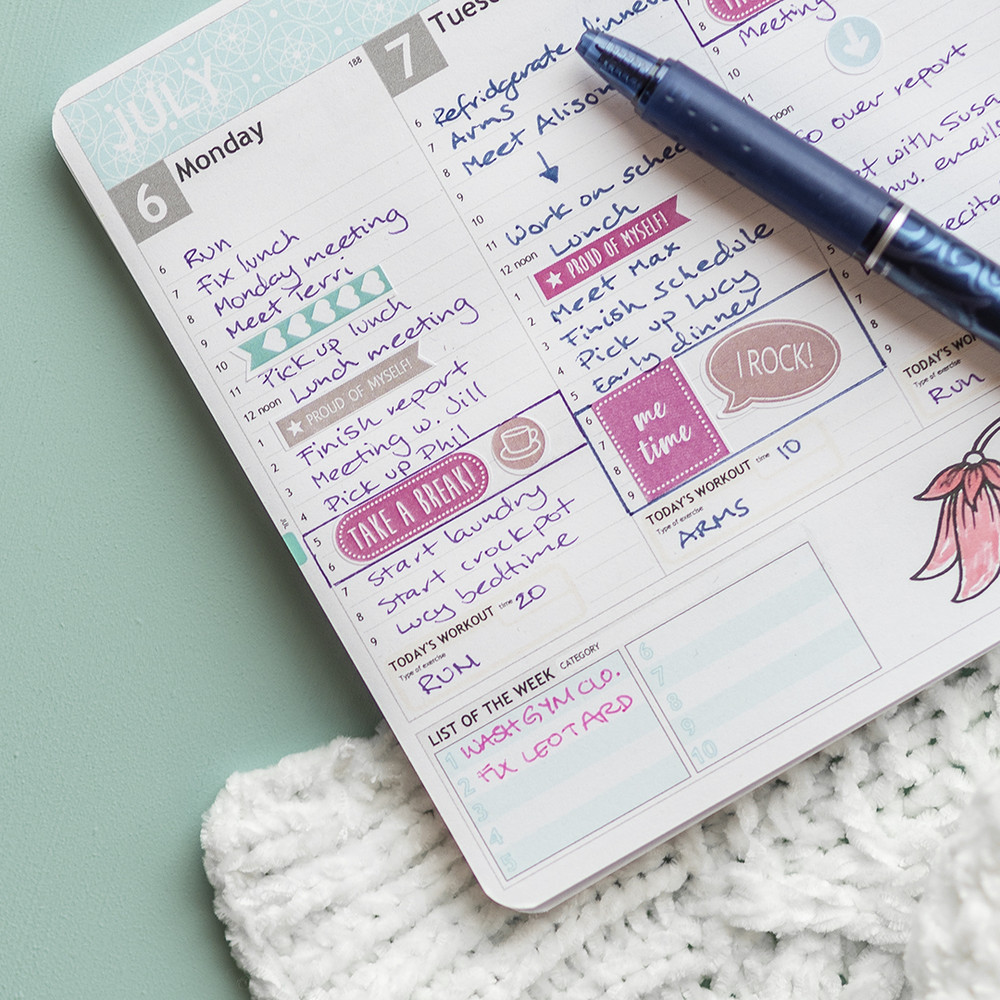 JULY
188
6 Monday
6 Run
Fix lunch
7 Monday meeting
8 Meet Terri
9
10 Pick up lunch
11 Lunch meeting
12 noon
PROUD OF MYSELF!
1 Finish report
2 Meeting w. Jill
3 Pick up Phil
4
5 TAKE A BREAK!
6
start laundry
7 start crockpot
8 Lucy bedtime
9
TODAY'S WORKOUT time 20
Type of exercise
RUN
7
Refridgerate dinner
6 Arms
7 Meet Alison
8
9
10 Work on
11 Lunch
12 noon
PROUD OF MYSELF!
1 Meet Max
2 Finish schedule
3 Pick up Lucy
4 Early dinner
5
I ROCK!
6 me
7 time
8
9
TODAY'S WORKOUT time 10
Type of exercise
ARMS
7
8
9 Meeting
10
11
noon
over report
with
5
6
7
8
9
Type of exercise
RUN
LIST OF THE WEEK CATEGORY
1 WASH GYM CLO.
2 FIX LEOTARD
3
4
5
6
7
8
9
10